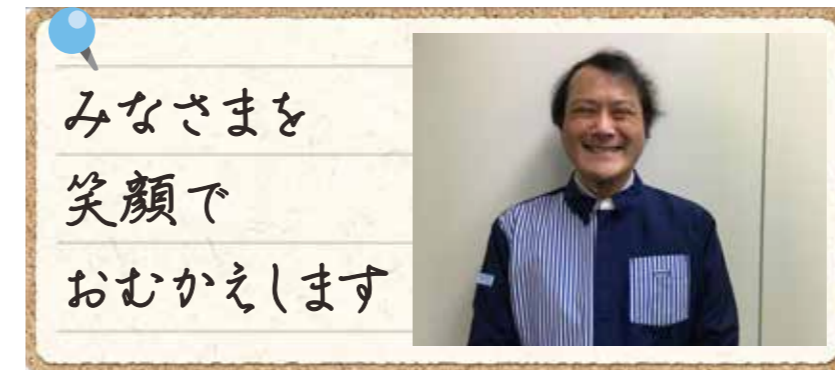 みなさまを
笑顔で
おむかえします